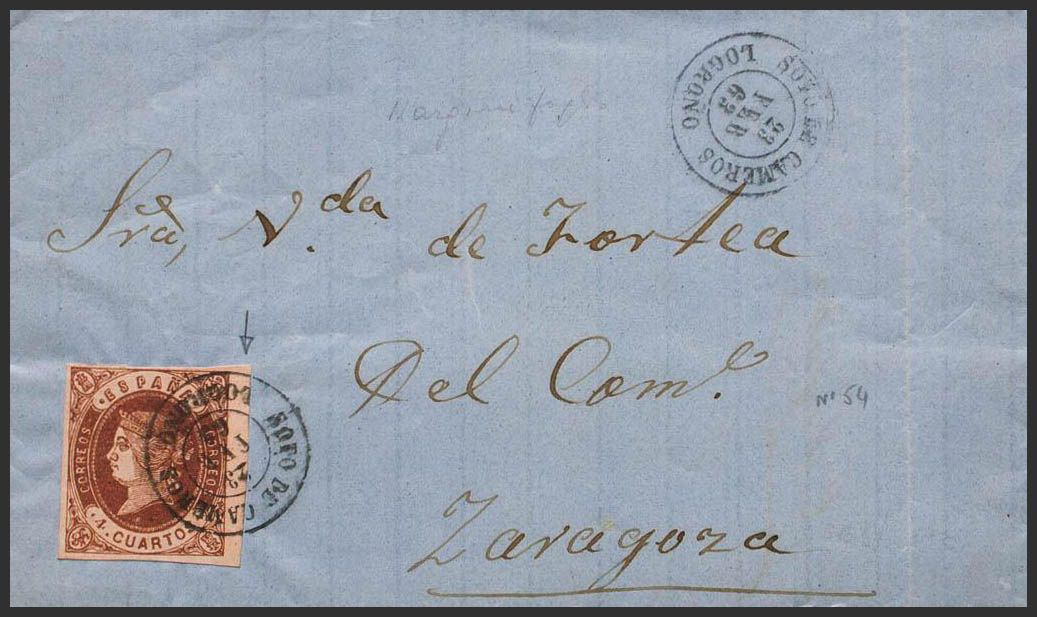 SOTO DE CAMEROS
LOGROÑO
23
FEB
63
Sra, V.da de Fortea
Del Com.o
Nº 54
Zaragoza
ESPAÑA
CORREOS
CORREOS
4 CUARTOS
SOTO DE CAMEROS
LOGROÑO
23